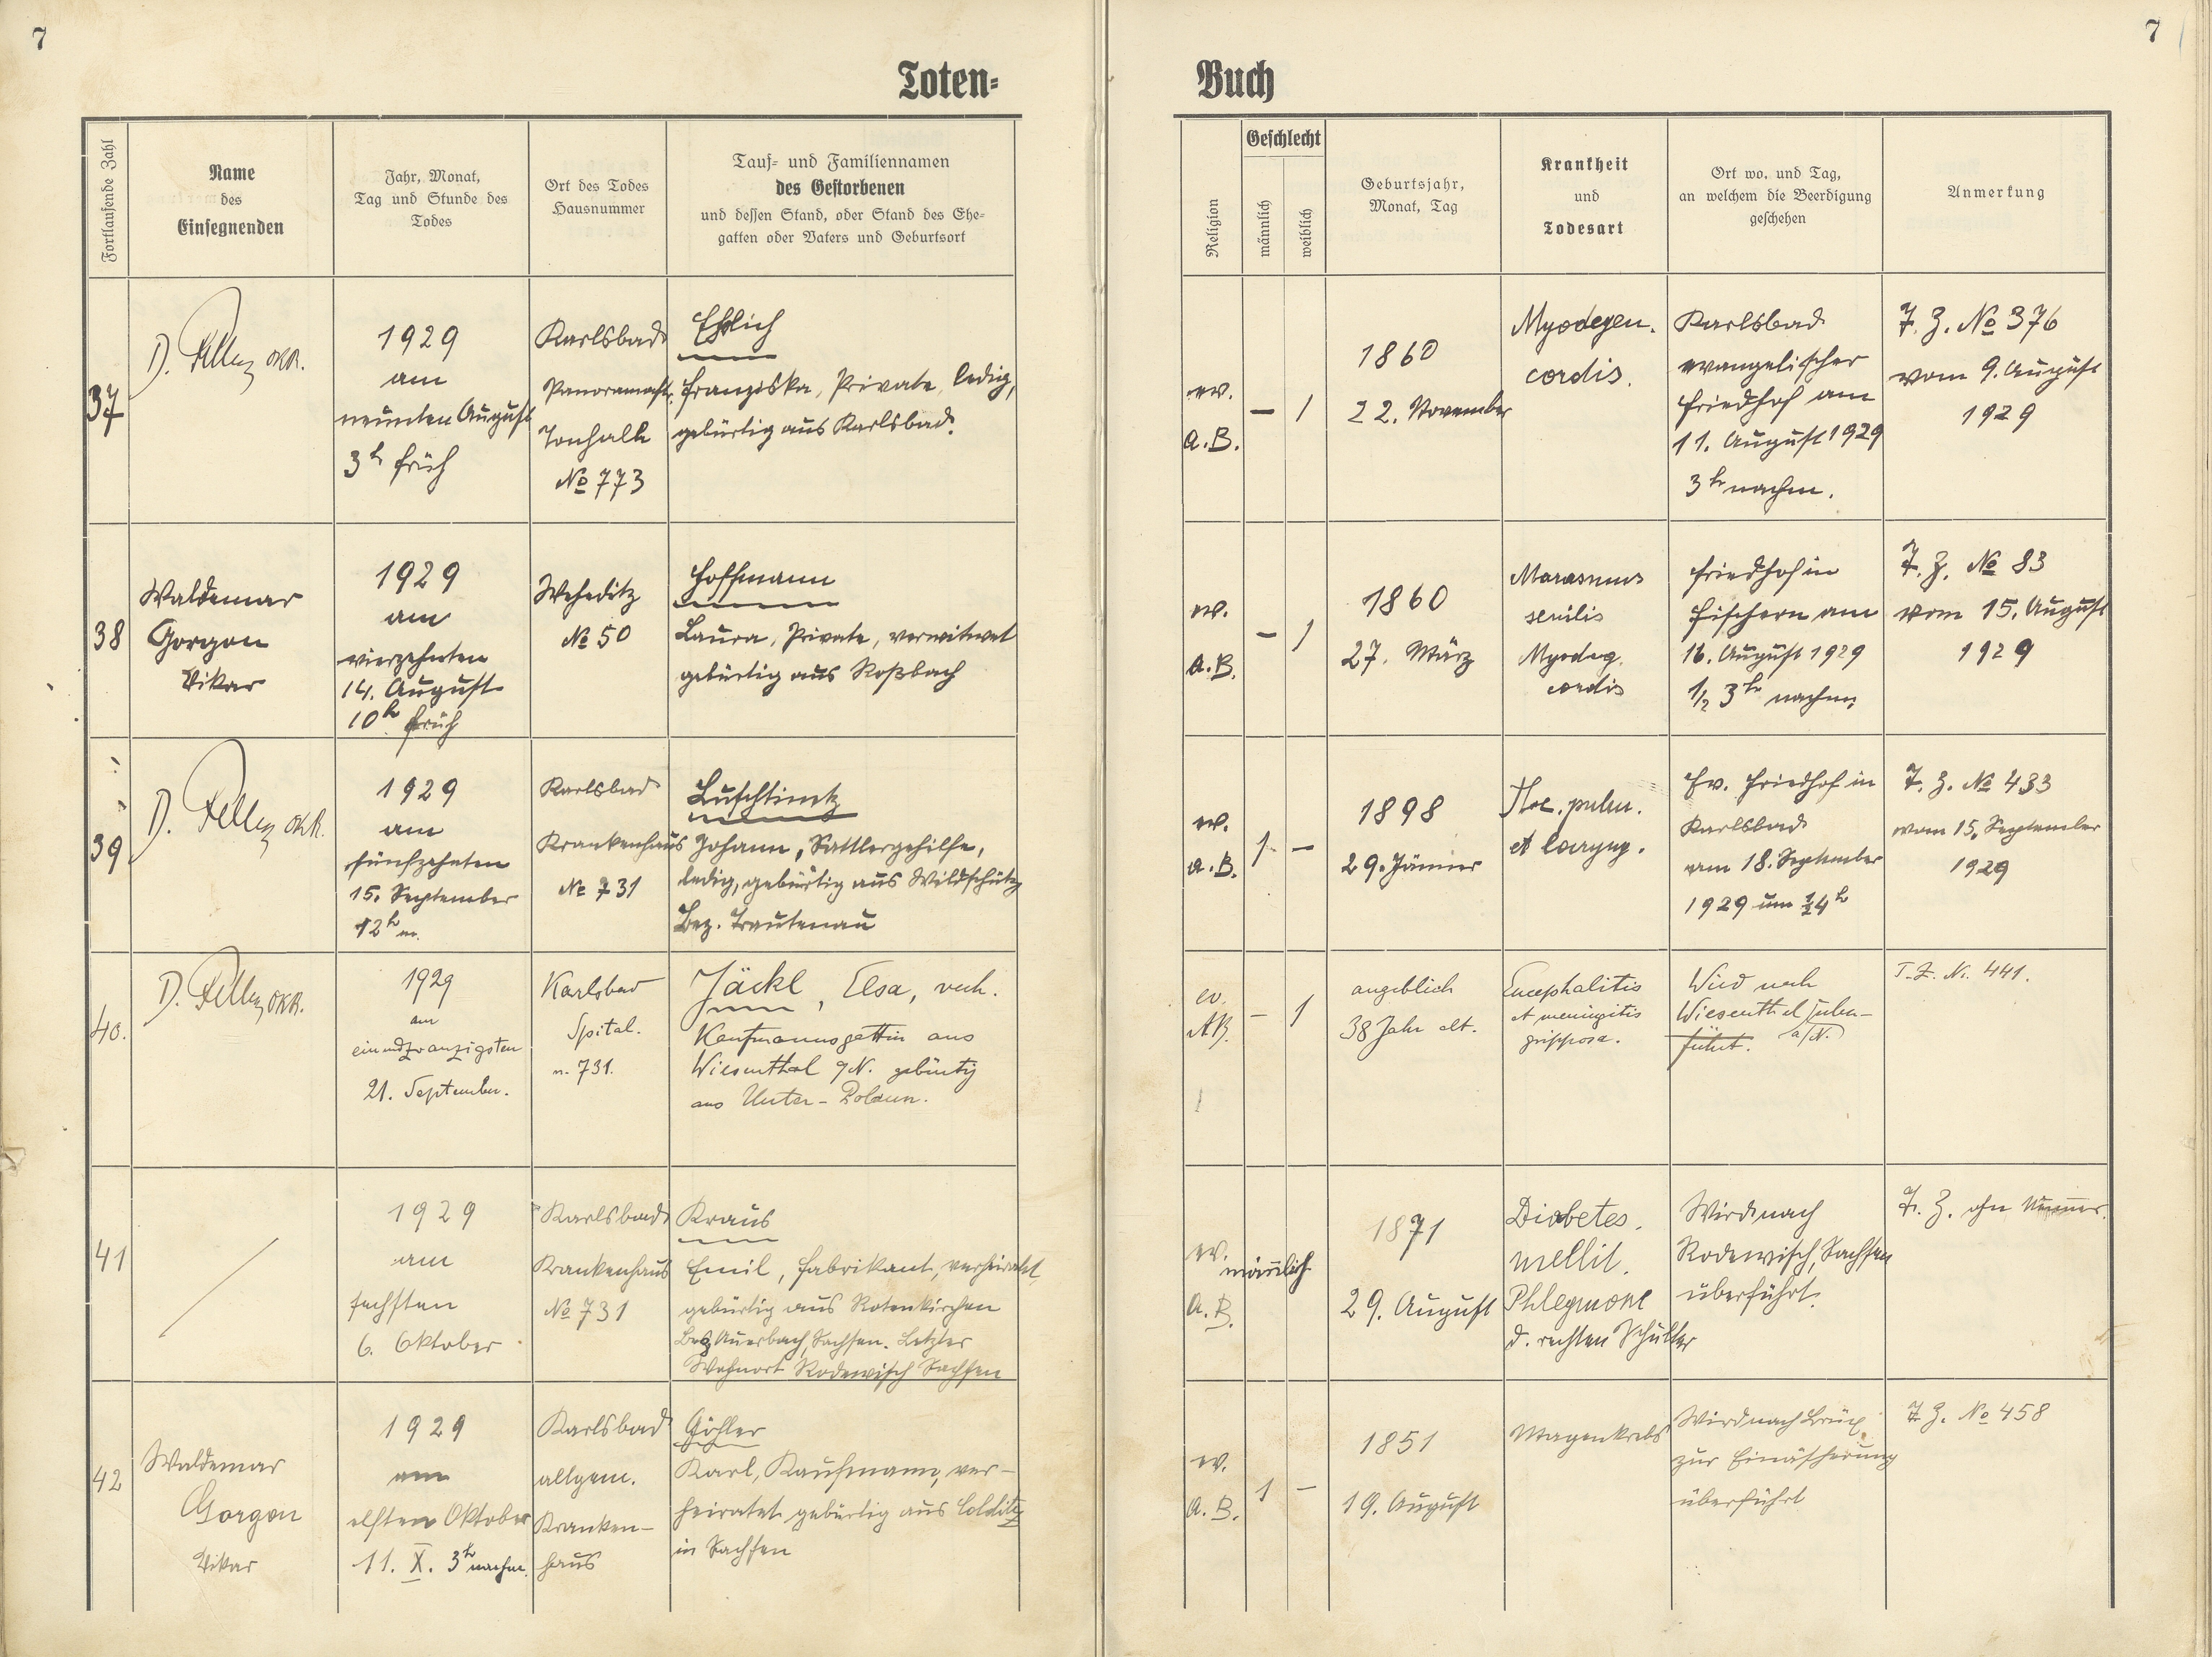 7
7
Toten=
Buch
Fortlaufende Zahl
Name
des
Einsegnenden
Jahr, Monat,
Tag und Stunde des
Todes
Ort des Todes
Hausnummer
Tauf= und Familiennamen
des Gestorbenen
und dessen Stand, oder Stand des Ehe=
gatten oder Vaters und Geburtsort
Religion
Geschlecht
männlich
weiblich
Geburtsjahr,
Monat, Tag
Krankheit
und
Todesart
Ort wo, und Tag,
an welchem die Beerdigung
geschehen
Anmerkung
37
D.
1929
am
neunten August
3h früh
Karlsbad
Panoramastr.
Tonhalle
No 773
Ehrlich
Franziska, Private, ledig,
gebürtig aus Karlsbad.
ev.
A.B.
—
1
1860
22. November
Myodegen.
cordis.
Karlsbad
evangelischer
Friedhof am
11. August 1929
3h nachm.
T. Z. No 376
vom 9. August
1929
38
Waldemar
Gorgon
Vikar
1929
am
vierzehnten
14. August
10h früh
Weheditz
No 50
Hoffmann
Laura, Private, verwitwet
gebürtig aus Roßbach
ev.
A.B.
—
1
1860
27. März
Marasmus
senilis
Myodeg.
cordis
Friedhof in
Fischern am
16. August 1929
1/2 3h nachm.
T. Z. No 83
vom 15. August
1929
39
D.
1929
am
fünfzehnten
15. September
12h m.
Karlsbad
Krankenhaus
No 731
Luschtinetz
Johann, Sattlergehilfe,
ledig, gebürtig aus Wildschütz
Bez. Trautenau
ev.
A.B.
1
—
1898
29. Jänner
Tbc. pulm.
et laryng.
Ev. Friedhof in
Karlsbad
am 18. September
1929 um 1/2 4h
T. Z. No 433
vom 15. September
1929
40.
D.
1929
am
einundzwanzigsten
21. September.
Karlsbad
Spital.
n. 731.
Jäckl, Elsa, verh.
Kaufmannsgattin aus
Wiesenthal a/N. gebürtig
aus Unter-Polaun.
ev.
AB.
—
1
angeblich
38 Jahr alt.
Encephalitis
et meningitis
gripposa.
Wird nach
Wiesenthal über-
führt. a/N.
T. Z. No. 441.
41
1929
am
sechsten
6. Oktober
Karlsbad
Krankenhaus
No 731
Kraus
Emil, Fabrikant, verheiratet,
gebürtig aus Rotenkirchen
Bez Auerbach, Sachsen. Letzter
Wohnort Rodewisch Sachsen
ev.
A.B.
männlich
1871
29. August
Diabetes.
mellit.
Phlegmone
d. rechten Schulter
Wird nach
Rodewisch, Sachsen
überführt.
T. Z. ohne Nummer.
42
Waldemar
Gorgon
Vikar
1929
am
elften Oktober
11. X. 3h nachm.
Karlsbad
allgem.
Kranken-
haus
Göhler
Karl, Kaufmann, ver-
heiratet gebürtig aus Colditz
in Sachsen
ev.
A.B.
1
—
1851
19. August
Magenkrebs
Wird nach Brüx
zur Einäscherung
überführt
T. Z. No 458